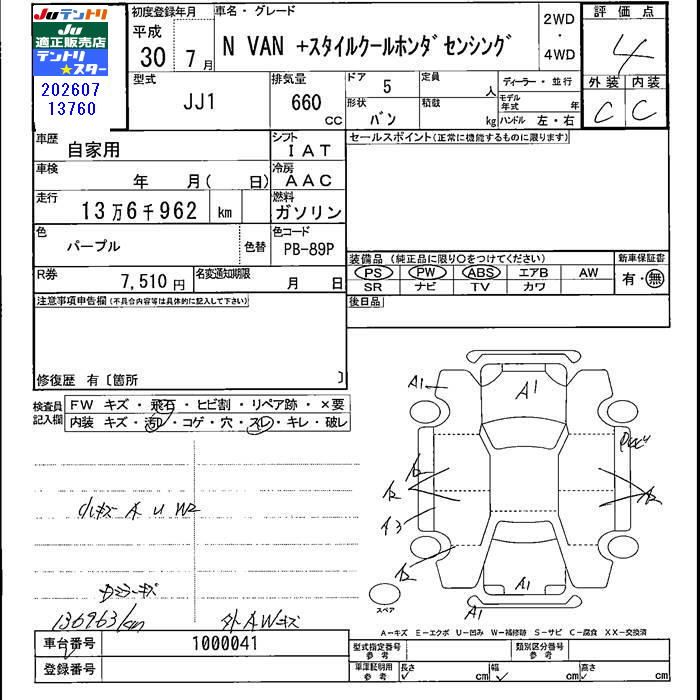 Juテントリ
JU
適正販売店
テントリ
★スター
202607
13760
初度登録年月
平成
30 7 月
車名・グレード
N VAN +スタイルクールホンダ センシング
2WD
・
4WD
評価点
4
外装 内装
C C
型式
JJ1
排気量
660
CC
ドア
5
形状
バン
定員
人
積載
kg
ディーラー・並行
モデル年式 年
ハンドル 左・右
車歴
自家用
シフト
IAT
車検
年 月( 日)
冷房
AAC
走行
13万6千962 km
燃料
ガソリン
色
パープル
色替
色コード
PB-89P
R券
7,510 円
名変通知期限
月 日
セールスポイント(正常に機能するものに限ります)
装備品(純正品に限り○をつけてください)
PS PW ABS エアB AW
SR ナビ TV カワ
新車保証書
有・無
後日品
注意事項申告欄(不具合内容等は具体的に記入して下さい)
修復歴 有〔箇所 〕
検査員
記入欄
FW キズ・飛石・ヒビ割・リペア跡・×要
内装 キズ・汚れ・コゲ・穴・スレ・キレ・破レ
小キズ A U W2
136963km
外AWキズ
A1
A1
A2
A2
A3
A2
A2
A1
A1
スペア
A-キズ E-エクボ U-凹み W-補修跡 S-サビ C-腐食 XX-交換済
車台番号
1000041
登録番号
型式指定番号
参考
類別区分番号
参考
車庫証明用
参考
長さ cm
幅 cm
高さ cm